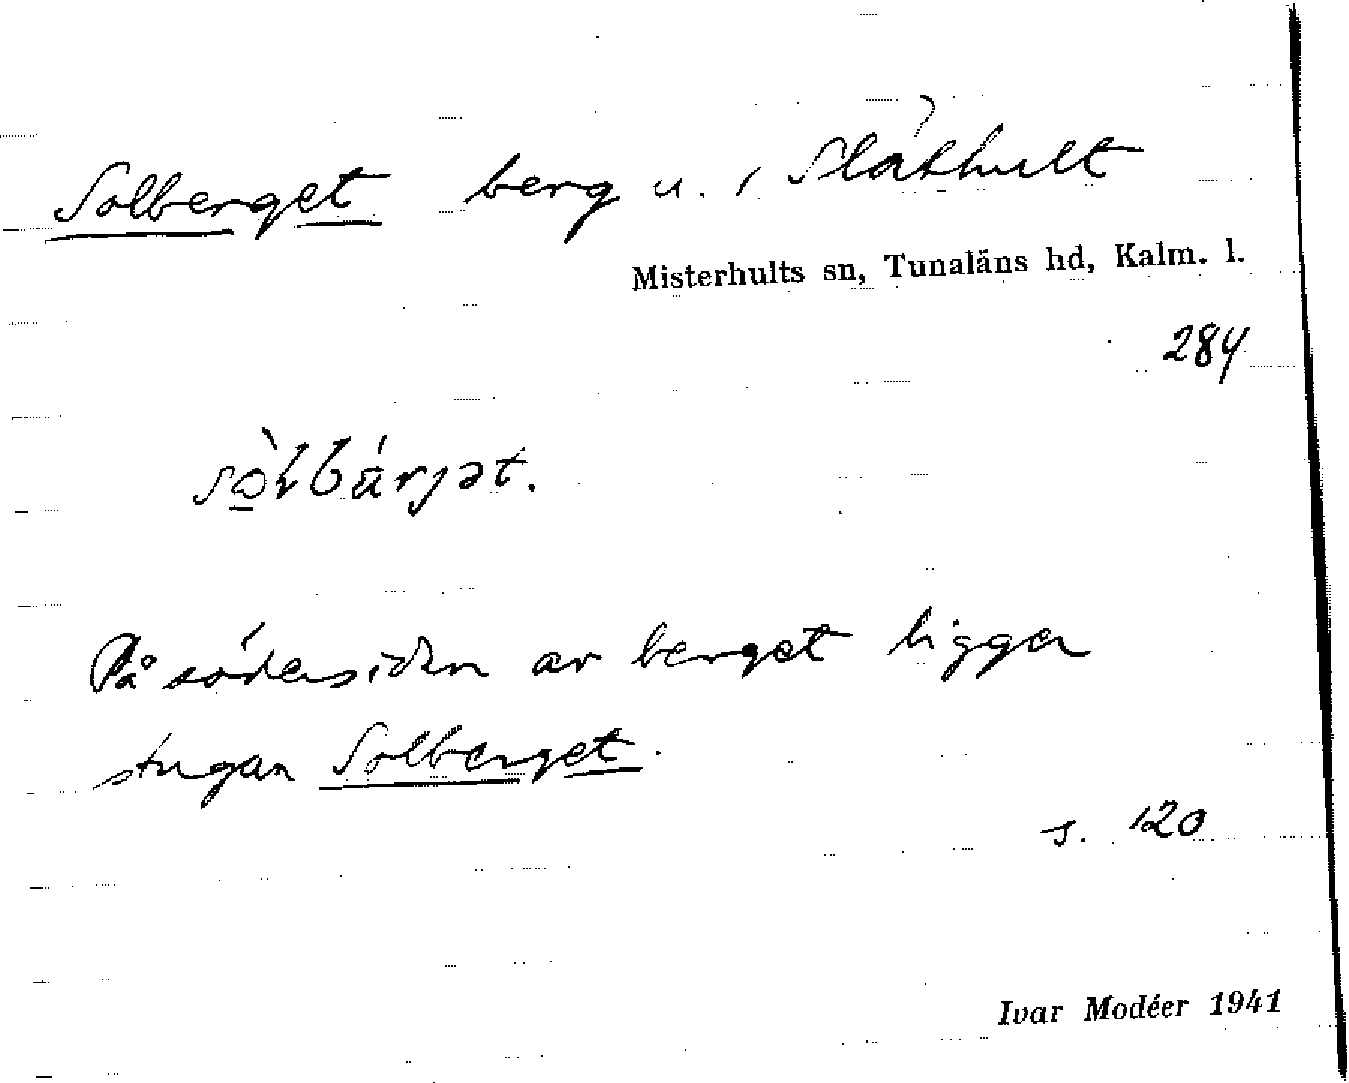 Solberget berg u. i Släthult
Misterhults sn, Tunaläns hd, Kalm. l.
284
På södersidan av berget ligger
stugan Solberget.
s. 120
Ivar Modéer 1941